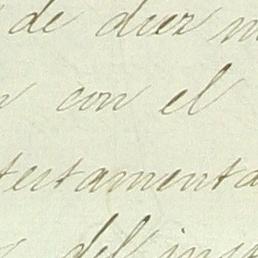 de diez
con el
testamenta
del